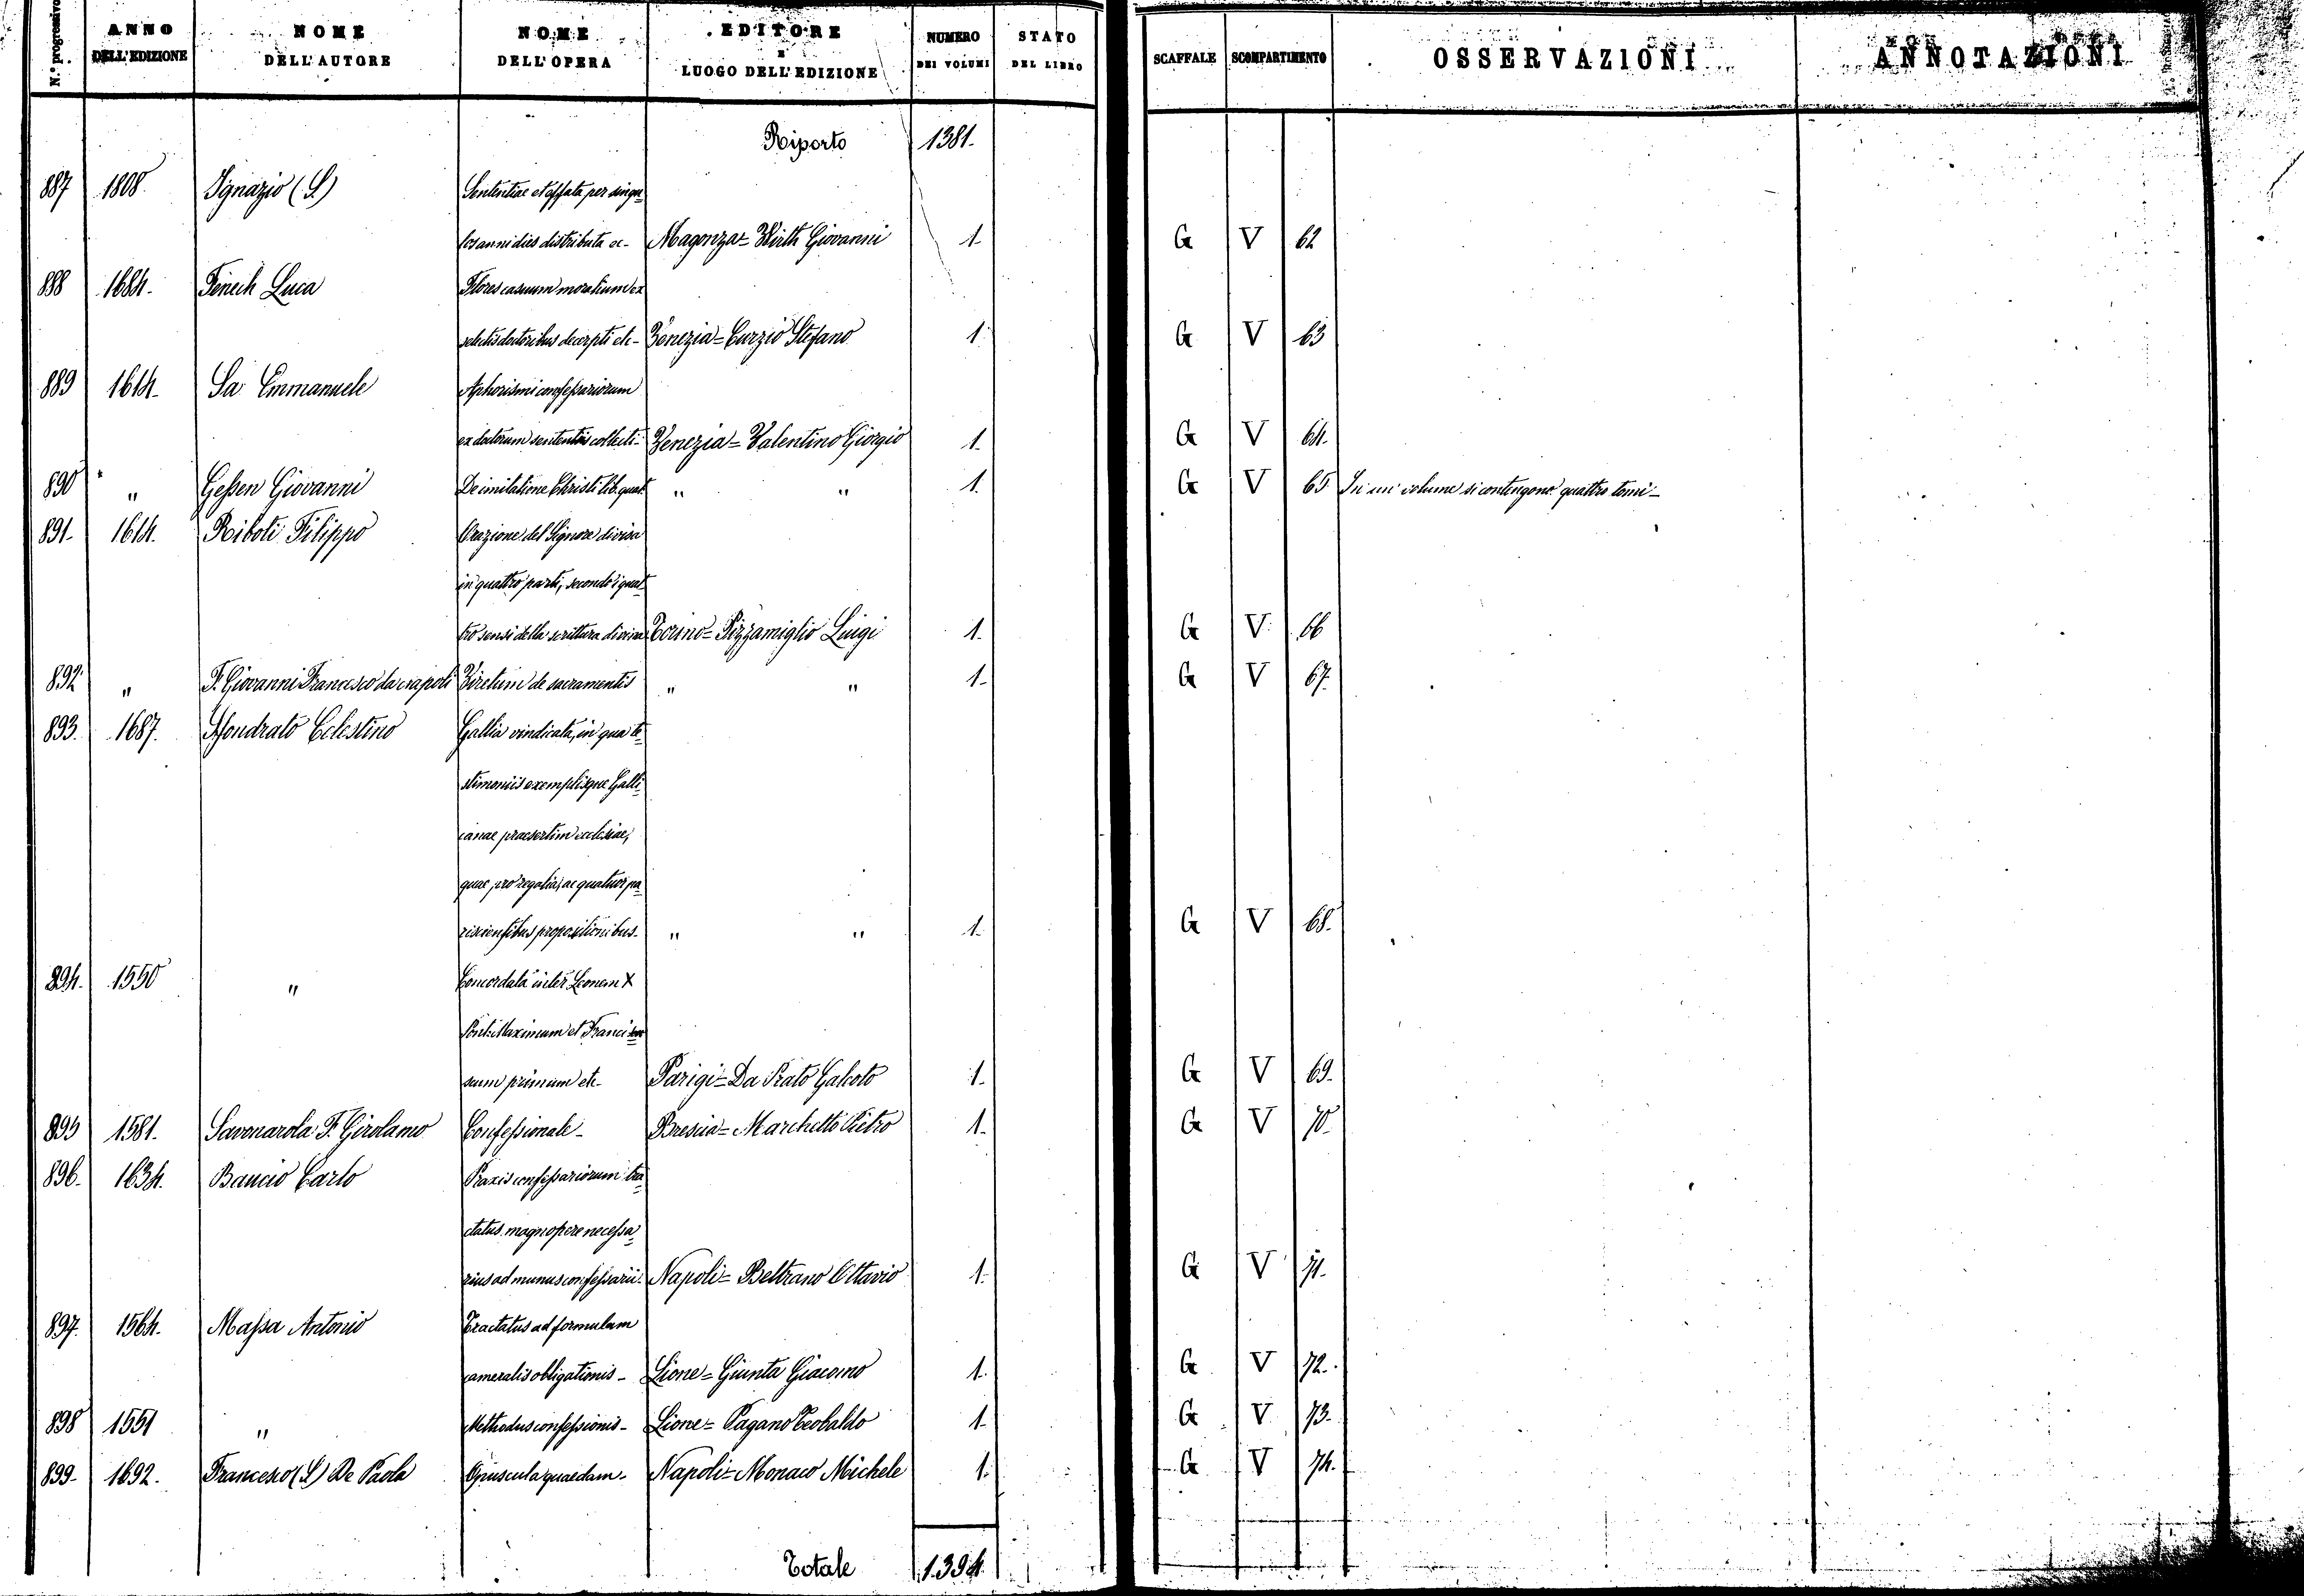 N.° progressivo | ANNO DELL'EDIZIONE | NOME DELL'AUTORE | NOME DELL'OPERA | EDITORE E LUOGO DELL'EDIZIONE | NUMERO DEI VOLUMI | STATO DEL LIBRO | SCAFFALE | SCOMPARTIMENTO | OSSERVAZIONI | ANNOTAZIONI
Riporto 1381.
887 1808. Ignazio (S.) Sententiae et effata per singu=
los anni dies distributa ec- Magonza= Wirth Giovanni 1. G V 62
888 1684. Fenech Luca Flores casuum moralium ex
selectis doctoribus decerpti etc- Venezia= Curzio Stefano 1. G V 63
889 1614. Sa Emmanuele Aphorismi confessariorum
ex doctorum sententiis collecti- Venezia= Valentino Giorgio 1. G V 64.
890 " Gessen Giovanni De imitatione Christi lib. quat. " " 1. G V 65 In un volume si contengono quattro tomi-
891. 1614. Riboti Filippo Orazione del Signore divisa
in quattro parti, secondo i quat=
tro sensi della scrittura divina Torino= Pizzamiglio Luigi 1. G V 66
892 " F. Giovanni Francesco da Napoli Viretum de sacramentis " " 1. G V 67.
893. 1687. Sfondrato Celestino Gallia vindicata, in qua te=
stimoniis exemplisque Galli=
canae praesertim ecclesiae,
quae pro regalia, ac quatuor pa=
risiensibus propositionibus- " " 1. G V 68.
894. 1550 " Concordata inter Leonem X
Pont. Maximum et Franci
scum primum etc- Parigi= Da Prato Galeoto 1. G V 69.
895 1581. Savonarola F. Girolamo Confessionale- Brescia= Marchetti Pietro 1. G V 70.
896. 1634. Baucio Carlo Praxis confessariorum tra=
ctatus magnopere necessa=
rius ad munus confessarii- Napoli= Beltrano Ottavio 1. G V 71.
897. 1564. Massa Antonio Tractatus ad formulam
cameralis obligationis- Lione= Giunta Giacomo 1. G V 72.
898 1551 " Methodus confessionis- Lione= Pagano Teobaldo 1. G V 73.
899. 1692. Francesco (S.) De Paola Opuscula quaedam- Napoli= Monaco Michele 1. G V 74.
Totale 1394.